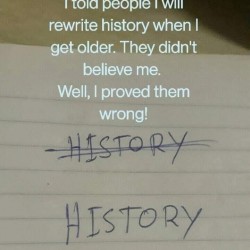 I told people I will
rewrite history when I
get older. They didn't
believe me.
Well, I proved them
wrong!
HISTORY
HISTORY